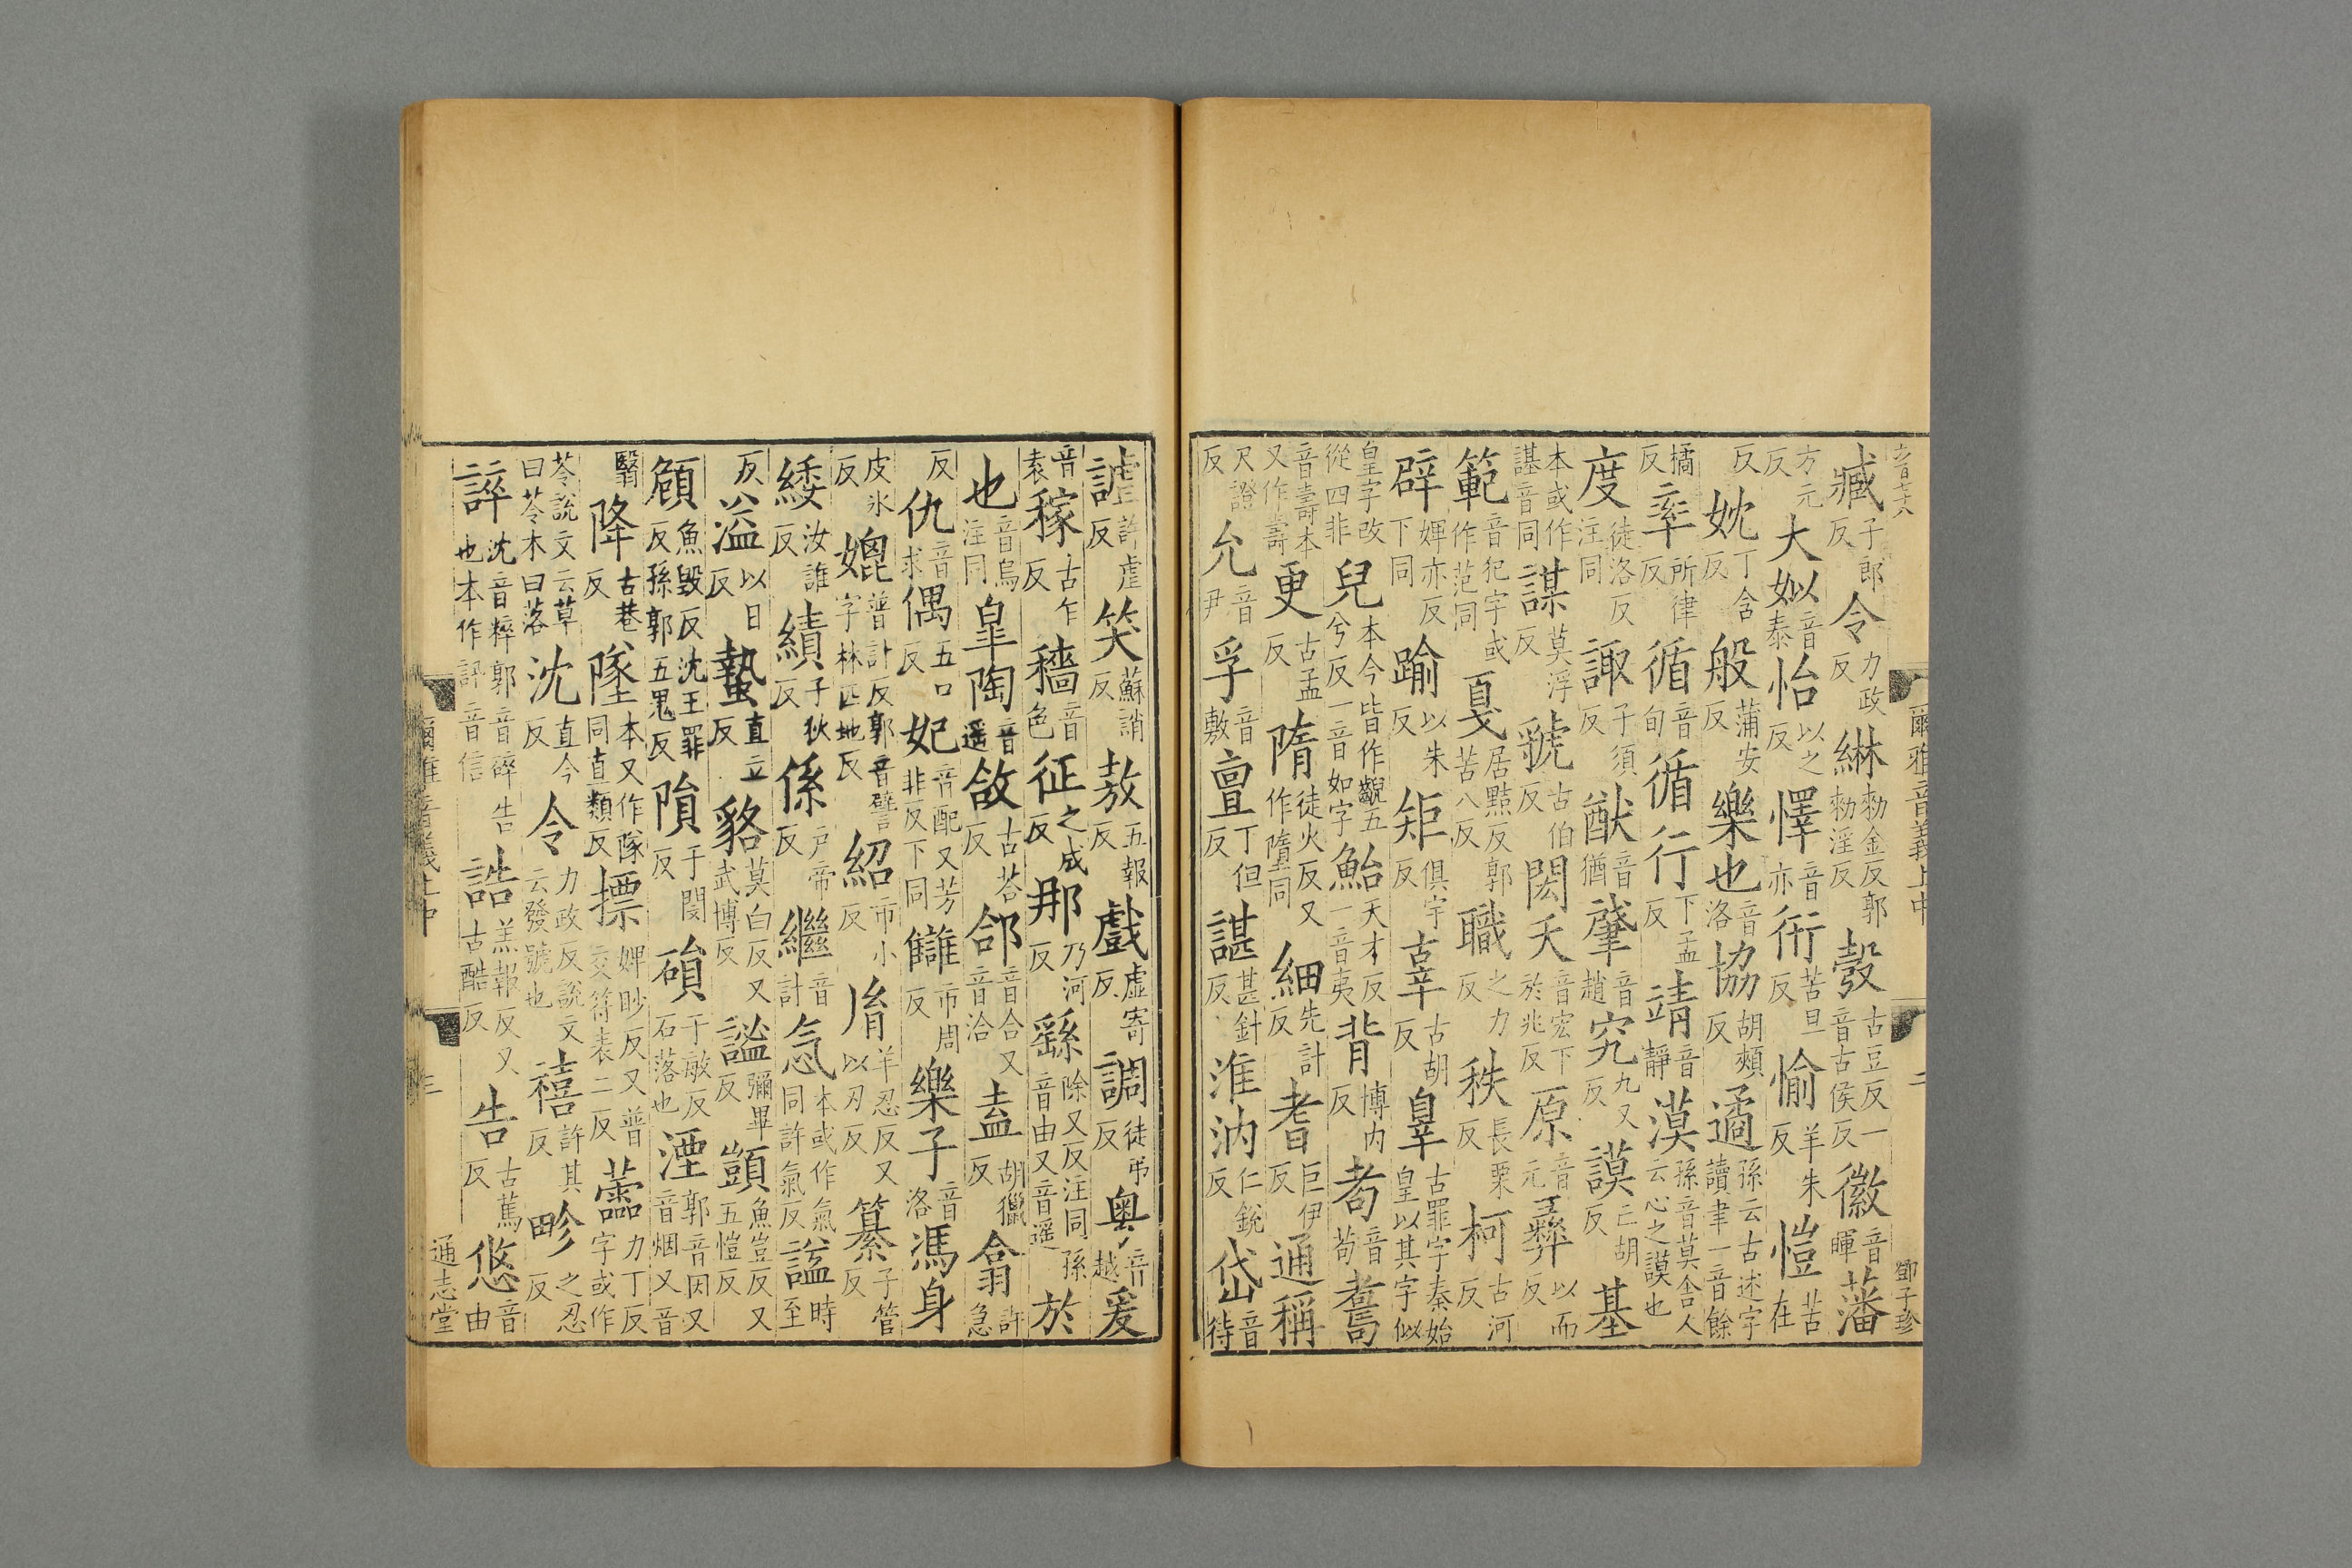 爾雅音義上中 二 鄧子珍
臧子郎反令力政反綝勑金反郭勑淫反彀古豆反一音古侯反徽音暉藩
方元反大姒音泰怡以之反懌音亦衎苦旦反愉羊朱反愷苦在
反妉丁含反般蒲安反樂也音洛協胡頰反遹孫云古述字讀聿一音餘
橘反率所律反循音旬循行下孟反靖音靜漠孫音莫舍人云心之謨也
度徒洛反注同諏子須反猷音猶肇音趙究九又反謨亡胡反基
本或作諶音同謀莫浮反虢古伯反閎夭音宏下於兆反原音元彝以而反
範音犯字或作范同戛居黠反郭苦八反職之力反秩長栗反柯古河反
辟婢亦反下同踰以朱反矩俱宇反辜古胡反辠古罪字秦始皇以其字似
皇字改從四非兒本今皆作齯五兮反一音如字鮐天才反一音夷背博内反耇音苟
音壽本又作壽更古孟反隋徒火反又作墮同細先計反耆巨伊反通稱
尺證反允音尹孚音敷亶丁但反諶甚針反淮汭仁銳反岱音待
謔許虐反笑蘇誚反敖五報反戲虛寄反調徒弔反粤音越爰
音袁稼古乍反穡音色征之成反那乃河反繇除又反注同孫音由又音遥於
也音烏注同皐陶音遥敆古荅反郃音合又音洽盍胡獵反翕許急
反仇音求偶五口反妃音配又芳非反下同讎市周反樂子音洛馮身
皮氷反媲普計反郭音譬字林匹地反紹市小反胤羊忍反又以刃反纂子管反
緌汝誰反績子狄反係户帝反繼音計忥本或作氣同許氣反謚時至
反溢以日反蟄直立反貉莫白反又武博反謐彌畢反顗魚豈反又五愷反
頠魚毁反沈王罪反孫郭五鬼反隕于閔反磒于敏反石落也湮郭音因又音烟又音
翳降古巷反墜本又作隊同直類反摽婢眇反又普交符表二反蘦力丁反字或作
苓說文云草曰苓木曰落沈直今反令力政反說文云發號也禧許其反畛之忍反
誶沈音粹郭音碎告也本作訊音信誥羔報反又古酷反告古篤反悠音由
爾雅音義上中 三 通志堂